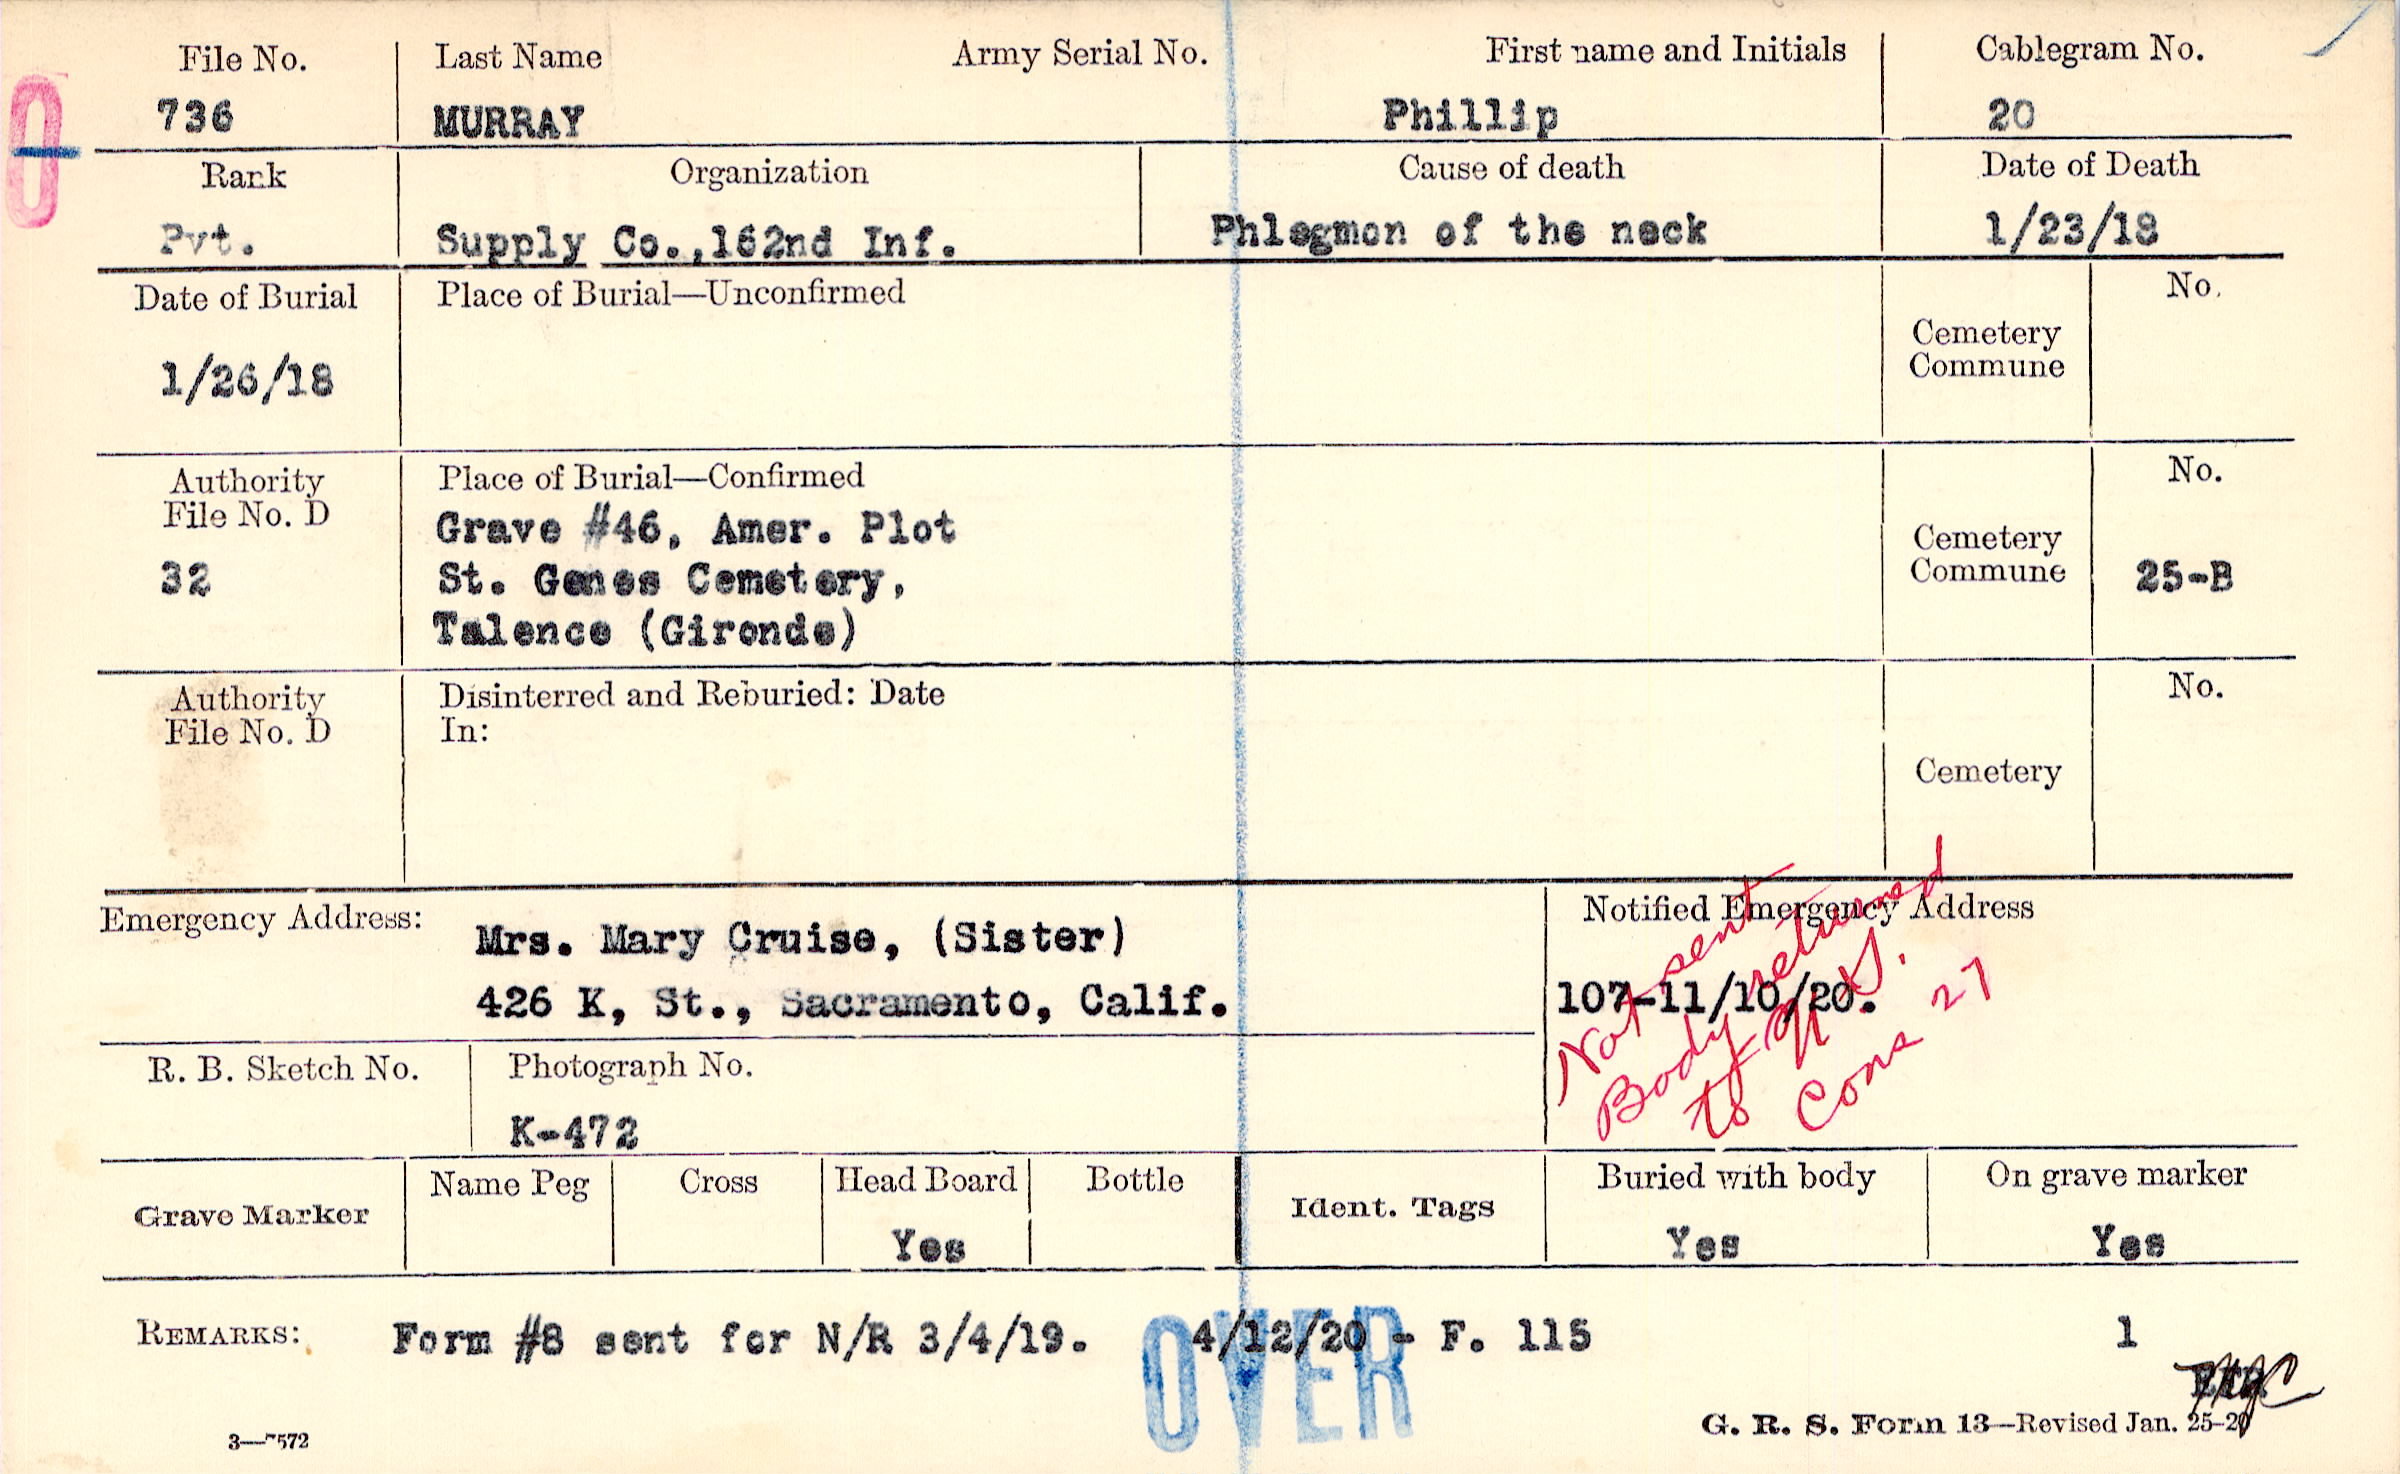 File No. Last Name Army Serial No. First name and Initials Cablegram No.
736 MURRAY Phillip 20
Rank Organization Cause of death Date of Death
Pvt. Supply Co.,162nd Inf. Phlegmon of the neck 1/23/18
Date of Burial Place of Burial—Unconfirmed No.
Cemetery
Commune
1/26/18
Authority Place of Burial—Confirmed No.
File No. D Grave #46, Amer. Plot
Cemetery
32 St. Genes Cemetery, Commune 25-B
Talence (Gironde)
Authority Disinterred and Reburied: Date No.
File No. D In:
Cemetery
Emergency Address: Notified Emergency Address
Mrs. Mary Cruise, (Sister)
426 K, St., Sacramento, Calif. 107-11/10/20.
Not sent
Body returned
to U.S.
Cons 27
R. B. Sketch No. Photograph No.
K-472
Grave Marker Name Peg Cross Head Board Bottle Ident. Tags Buried with body On grave marker
Yes Yes Yes
REMARKS: Form #8 sent for N/R 3/4/19. 4/12/20 - F. 115 1
OVER
3—7572 G. R. S. Form 13—Revised Jan. 25-20